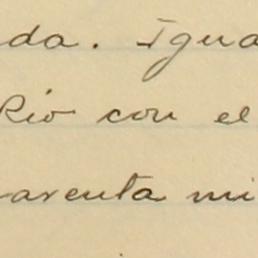 da. Igua
Rio con el
arenta mi